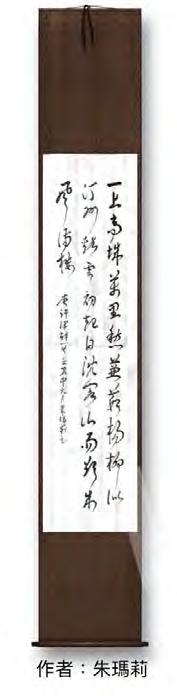 一上高城萬里愁蒹葭楊柳似
汀洲溪雲初起日沈閣山雨欲來
風滿樓 唐許渾詩 朱瑪莉
作者：朱瑪莉